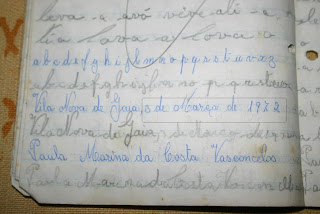 leva - a avó vive ali - a
lia lava a cova o
a b c d e f g h i j l m n o p q r s t u v x z
a b c d e f g h i j l m n o p q r s t u v
Vila Nova de Gaia, 3 de Março de 1982
Vila Nova de Gaia, 3 de Março de
Paula Marina da Costa Vasconcelos
Paula Marina da Costa Vasconcelos